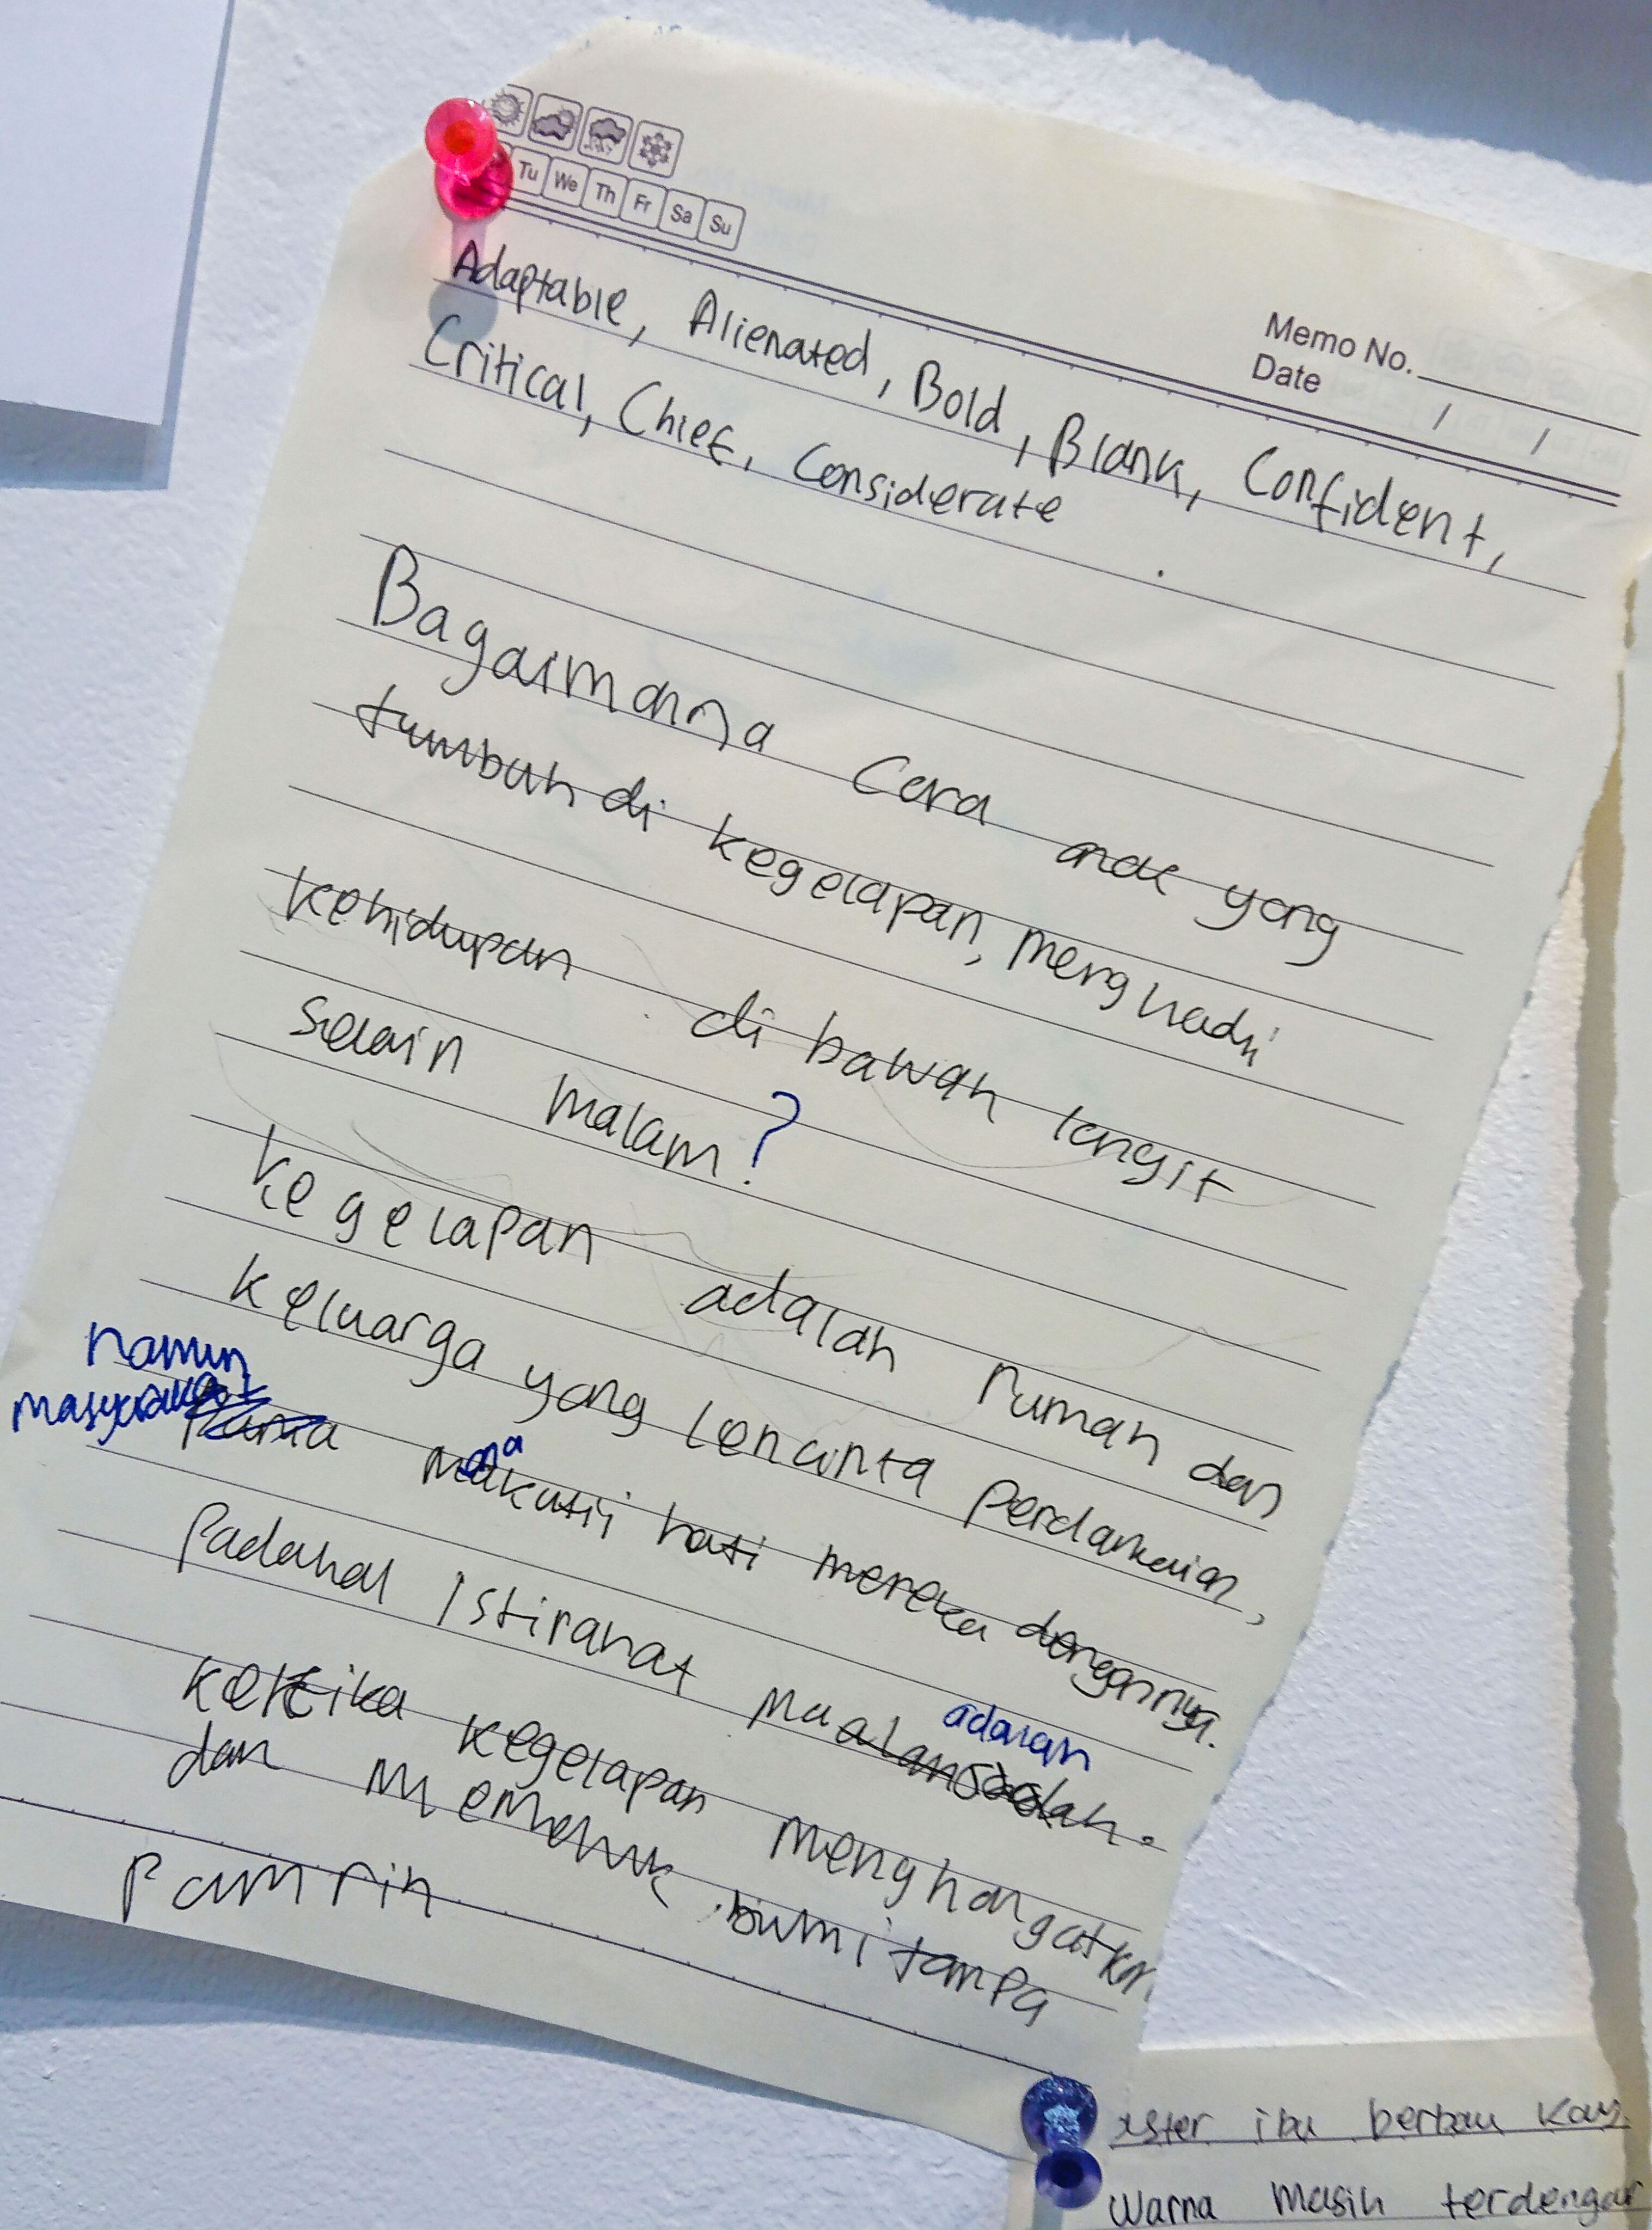 Tu We Th Fr Sa Su
Memo No.
Date / /
Adaptable, Alienated, Bold, Blank, Confident,
Critical, Chief, Considerate
Bagaimana cara anak yang
tumbuh di kegelapan, menghadi
kehidupan di bawah langit
selain malam?
kegelapan adalah rumah dan
keluarga yang lencinta perdamaian,
namun
masyarakat
hati mereka dengannya.
Padahal Istirahat
adalah
ketika kegelapan menghangatkan
dan memeluk bumi tanpa
pamrih
ster ibu berbau
Warna masih terdengar